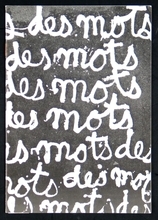 des mots
des mots
des mots
des mots
s mots des
mots des
des mots